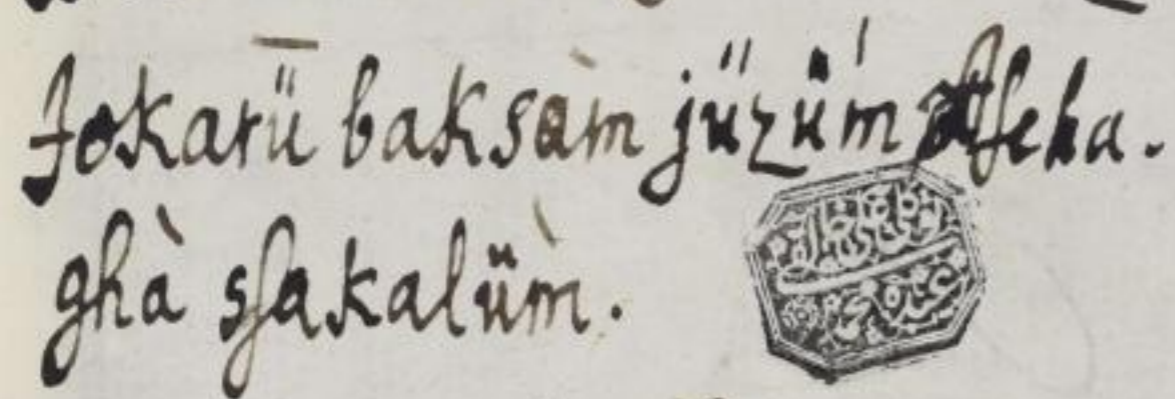 Jokarü baksàm jüzüm aſſeha.
ghà sſakalüm.